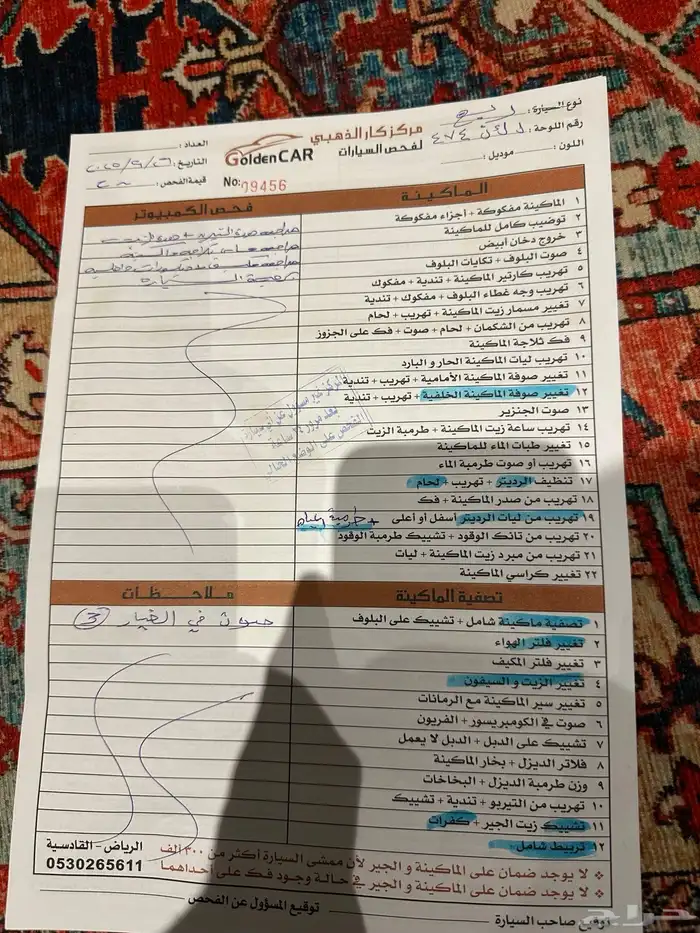 نوع السيارة :
رقم اللوحة : ٤٧٤
اللون : موديل :
مركز كار الذهبي
لفحص السيارات
GoldenCAR
No: 09456
العداد :
التاريخ :
قيمة الفحص :
الماكينة
١ الماكينة مفكوكة + أجزاء مفكوكة
٢ توضيب كامل للماكينة
٣ خروج دخان أبيض
٤ صوت البلوف + تكايات البلوف
٥ تهريب كارتير الماكينة + تندية + مفكوك
٦ تهريب وجه غطاء البلوف + مفكوك + تندية
٧ تغيير مسمار زيت الماكينة + تهريب + لحام
٨ تهريب من الشكمان + لحام + صوت + فك على الجزوز
٩ فك ثلاجة الماكينة
١٠ تهريب ليات الماكينة الحار و البارد
١١ تغيير صوفة الماكينة الأمامية + تهريب + تندية
١٢ تغيير صوفة الماكينة الخلفية + تهريب + تندية
١٣ صوت الجنزير
١٤ تهريب ساعة زيت الماكينة + طرمبة الزيت
١٥ تغيير طبات الماء للماكينة
١٦ تهريب أو صوت طرمبة الماء
١٧ تنظيف الرديتر + تهريب + لحام
١٨ تهريب من صدر الماكينة + فك
١٩ تهريب من ليات الرديتر أسفل أو أعلى
٢٠ تهريب من تانك الوقود + تشييك طرمبة الوقود
٢١ تهريب من مبرد زيت الماكينة + ليات
٢٢ تغيير كراسي الماكينة
فحص الكمبيوتر
المركز غير مسؤول عن أي
بعد مرور ٢٤ ساعة
الفحص على الوضع الحالي
تصفية الماكينة
١ تصفية ماكينة شامل + تشييك على البلوف
٢ تغيير فلتر الهواء
٣ تغيير فلتر المكيف
٤ تغيير الزيت و السيفون
٥ تغيير سير الماكينة مع الرمانات
٦ صوت في الكومبريسور + الفريون
٧ تشييك على الدبل + الدبل لا يعمل
٨ فلاتر الديزل + بخار الماكينة
٩ وزن طرمبة الديزل + البخاخات
١٠ تهريب من التيربو + تندية + تشييك
١١ تشييك زيت الجير + كفرات
١٢ تربيط شامل
ملاحظات
صوت في الغيار (3)
❖ لا يوجد ضمان على الماكينة و الجير لأن ممشى السيارة أكثر من ٣٠٠ ألف
❖ لا يوجد ضمان على الماكينة و الجير في حالة وجود فك على أحداهما
الرياض - القادسية
0530265611
توقيع صاحب السيارة
توقيع المسؤول عن الفحص
حراج